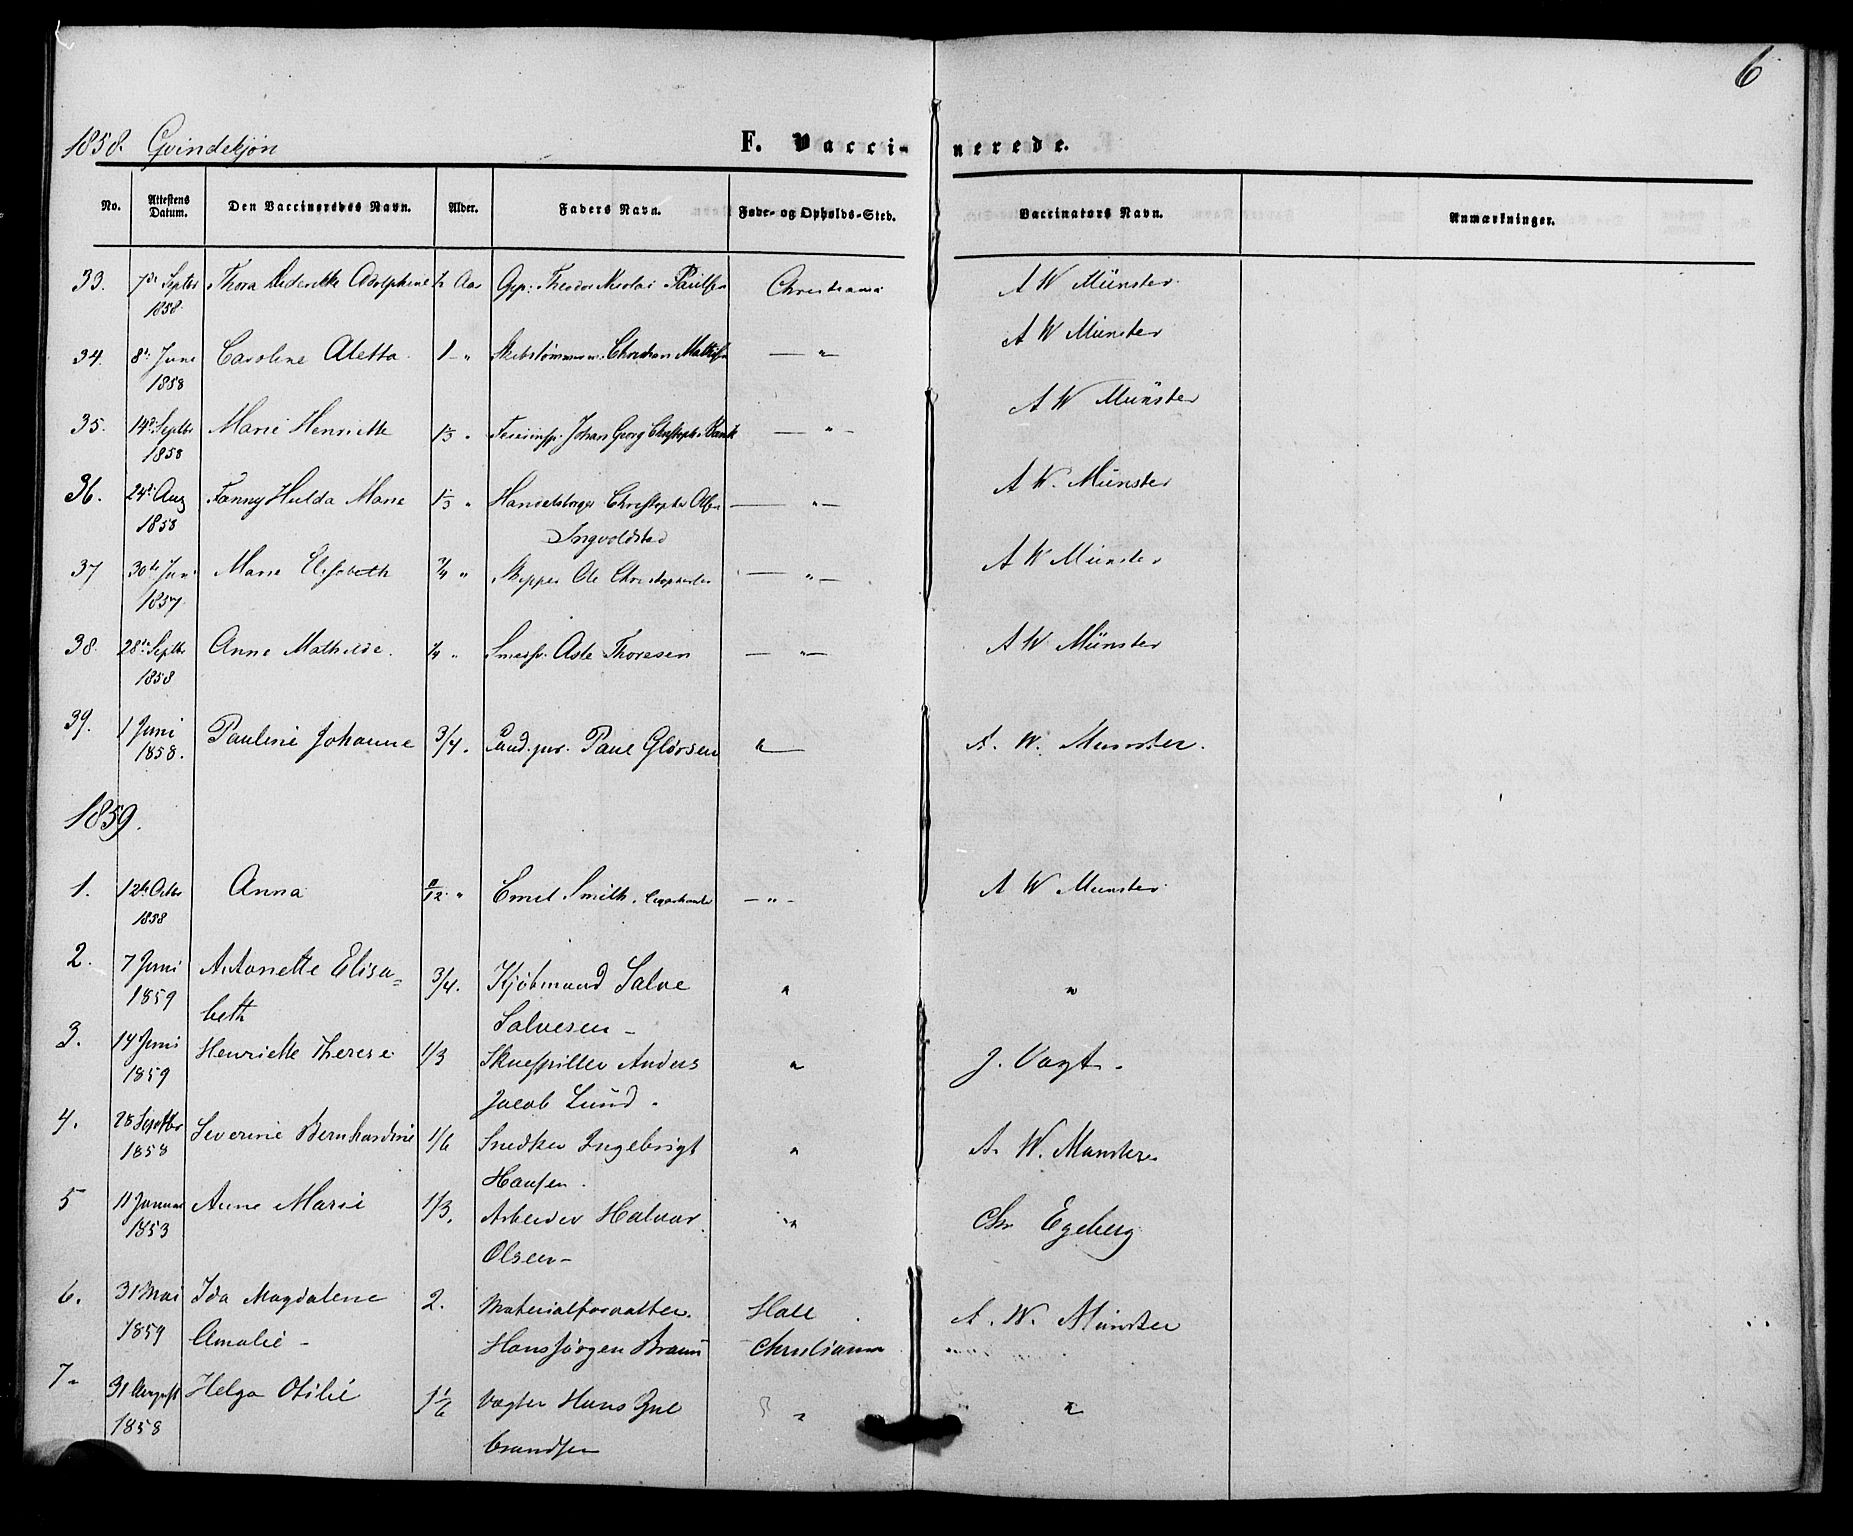 6
1858. Qvindekjøn
F. Vaccinerede.
No. Attestens Datum. Den Vaccineredes Navn. Alder. Faders Navn. Føde- og Opholds-Sted. Vaccinators Navn. Anmærkninger.
33. 7de Septbr Thora Aar Theodor Nicolai Christiania A W Münster
1858.
34. 8de Juni Caroline Aletta. 1 " Christian — " A W Münster
1858
35. 14de Septbr Marie Henriette 1/3 " Johan Georg — " — A W Münster
1858
36. 24de Aug Fanny Hulda Marie 1/3 " Christopher Olsen — " — A W. Münster
1858 Ingvoldstad
37 30te Juni Marie Elisabeth 3/4 " Skipper Ole Christophersen — " — A W Münster
1857.
38. 28de Septbr Anne Mathilde. 1/4 " Thoresen — " — A W. Münster
1858
39. 1 Juni Pauline Johanne 3/4. Cand. jur. Paul Glørsen " — A. W. Münster.
1858.
1859.
1. 12te Octbr Anna /12 " Emil Smith, — " — A W Münster
1858
2. 7 Juni Antonette Elisa- 3/4. Kjøbmand Salve " "
1859 beth Salvesen —
3. 14 Juni Henriette Therese 1/3 Skuespiller Anders " J. Vogt.
1859 Jacob Lund.
4. 28 Septbr Severine Bernhardine 1/6 Snedker Ingebrigt " A. W. Münster.
1858 Hansen.
5 11 Januar Anne Marie 1/3. Arbeider Halvor " Chr Egeberg
1853 Olsen —
6. 31 Mai Ida Magdalene 2. Materialforvalter Hall A. W. Münster
1859 Amalie — Hans Jørgen Braun Christiania
7. 31 August Helga Otilie 1 1/6 Vægter Hans Gul " "
1858 brandsen